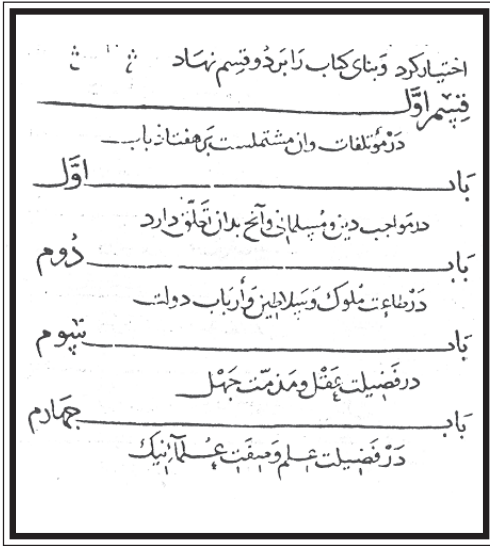 اختیار کرد و بنای کتاب را بر دو قسم نهاد
قسم اوّل
در مؤتلفات وان مشتملست بر هفتاد باب
باب اوّل
در مواجب دین و مسلمانی و آنچ بدان تعلّق دارد
باب دوم
در طاعت ملوک و سلاطین و أرباب دولت
باب سوم
در فضیلت عقل و مذمّت جهل
باب چهارم
در فضیلت علم و صفت علماء نیک